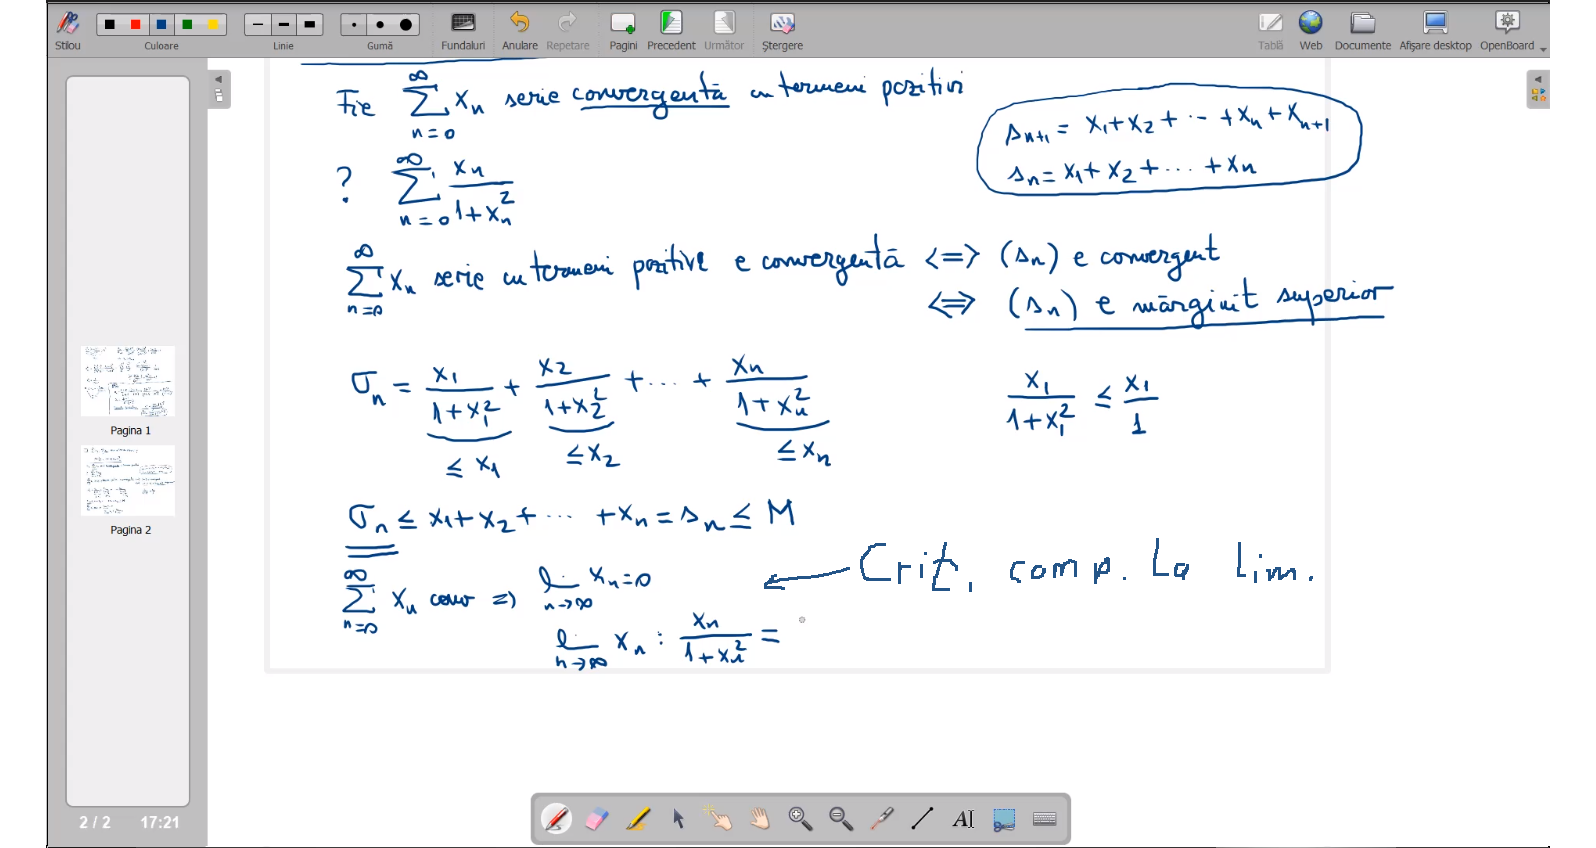 Stilou
Culoare
Linie
Gumă
Fundaluri
Anulare
Repetare
Pagini
Precedent
Următor
Ștergere
Tablă
Web
Documente
Afișare desktop
OpenBoard
Pagina 1
Pagina 2
2 / 2 17:21
Fie ∑_{n=0}^{∞} x_n serie convergentă cu termeni pozitivi
s_{n+1} = x_1+x_2+ ... +x_n+x_{n+1}
s_n = x_1+x_2+ .... +x_n
? ∑_{n=0}^{∞} x_n/(1+x_n^2)
∑_{n=0}^{∞} x_n serie cu termeni pozitive e convergentă <=> (s_n) e convergent
<=> (s_n) e mărginit superior
σ_n = x_1/(1+x_1^2) + x_2/(1+x_2^2) + ... + x_n/(1+x_n^2)
≤ x_1 ≤ x_2 ≤ x_n
x_1/(1+x_1^2) ≤ x_1/1
σ_n ≤ x_1+x_2+ ... +x_n = s_n ≤ M
∑_{n=0}^{∞} x_n conv => lim_{n→∞} x_n = 0
Crit. comp. La lim.
lim_{n→∞} x_n : x_n/(1+x_n^2) =
AI